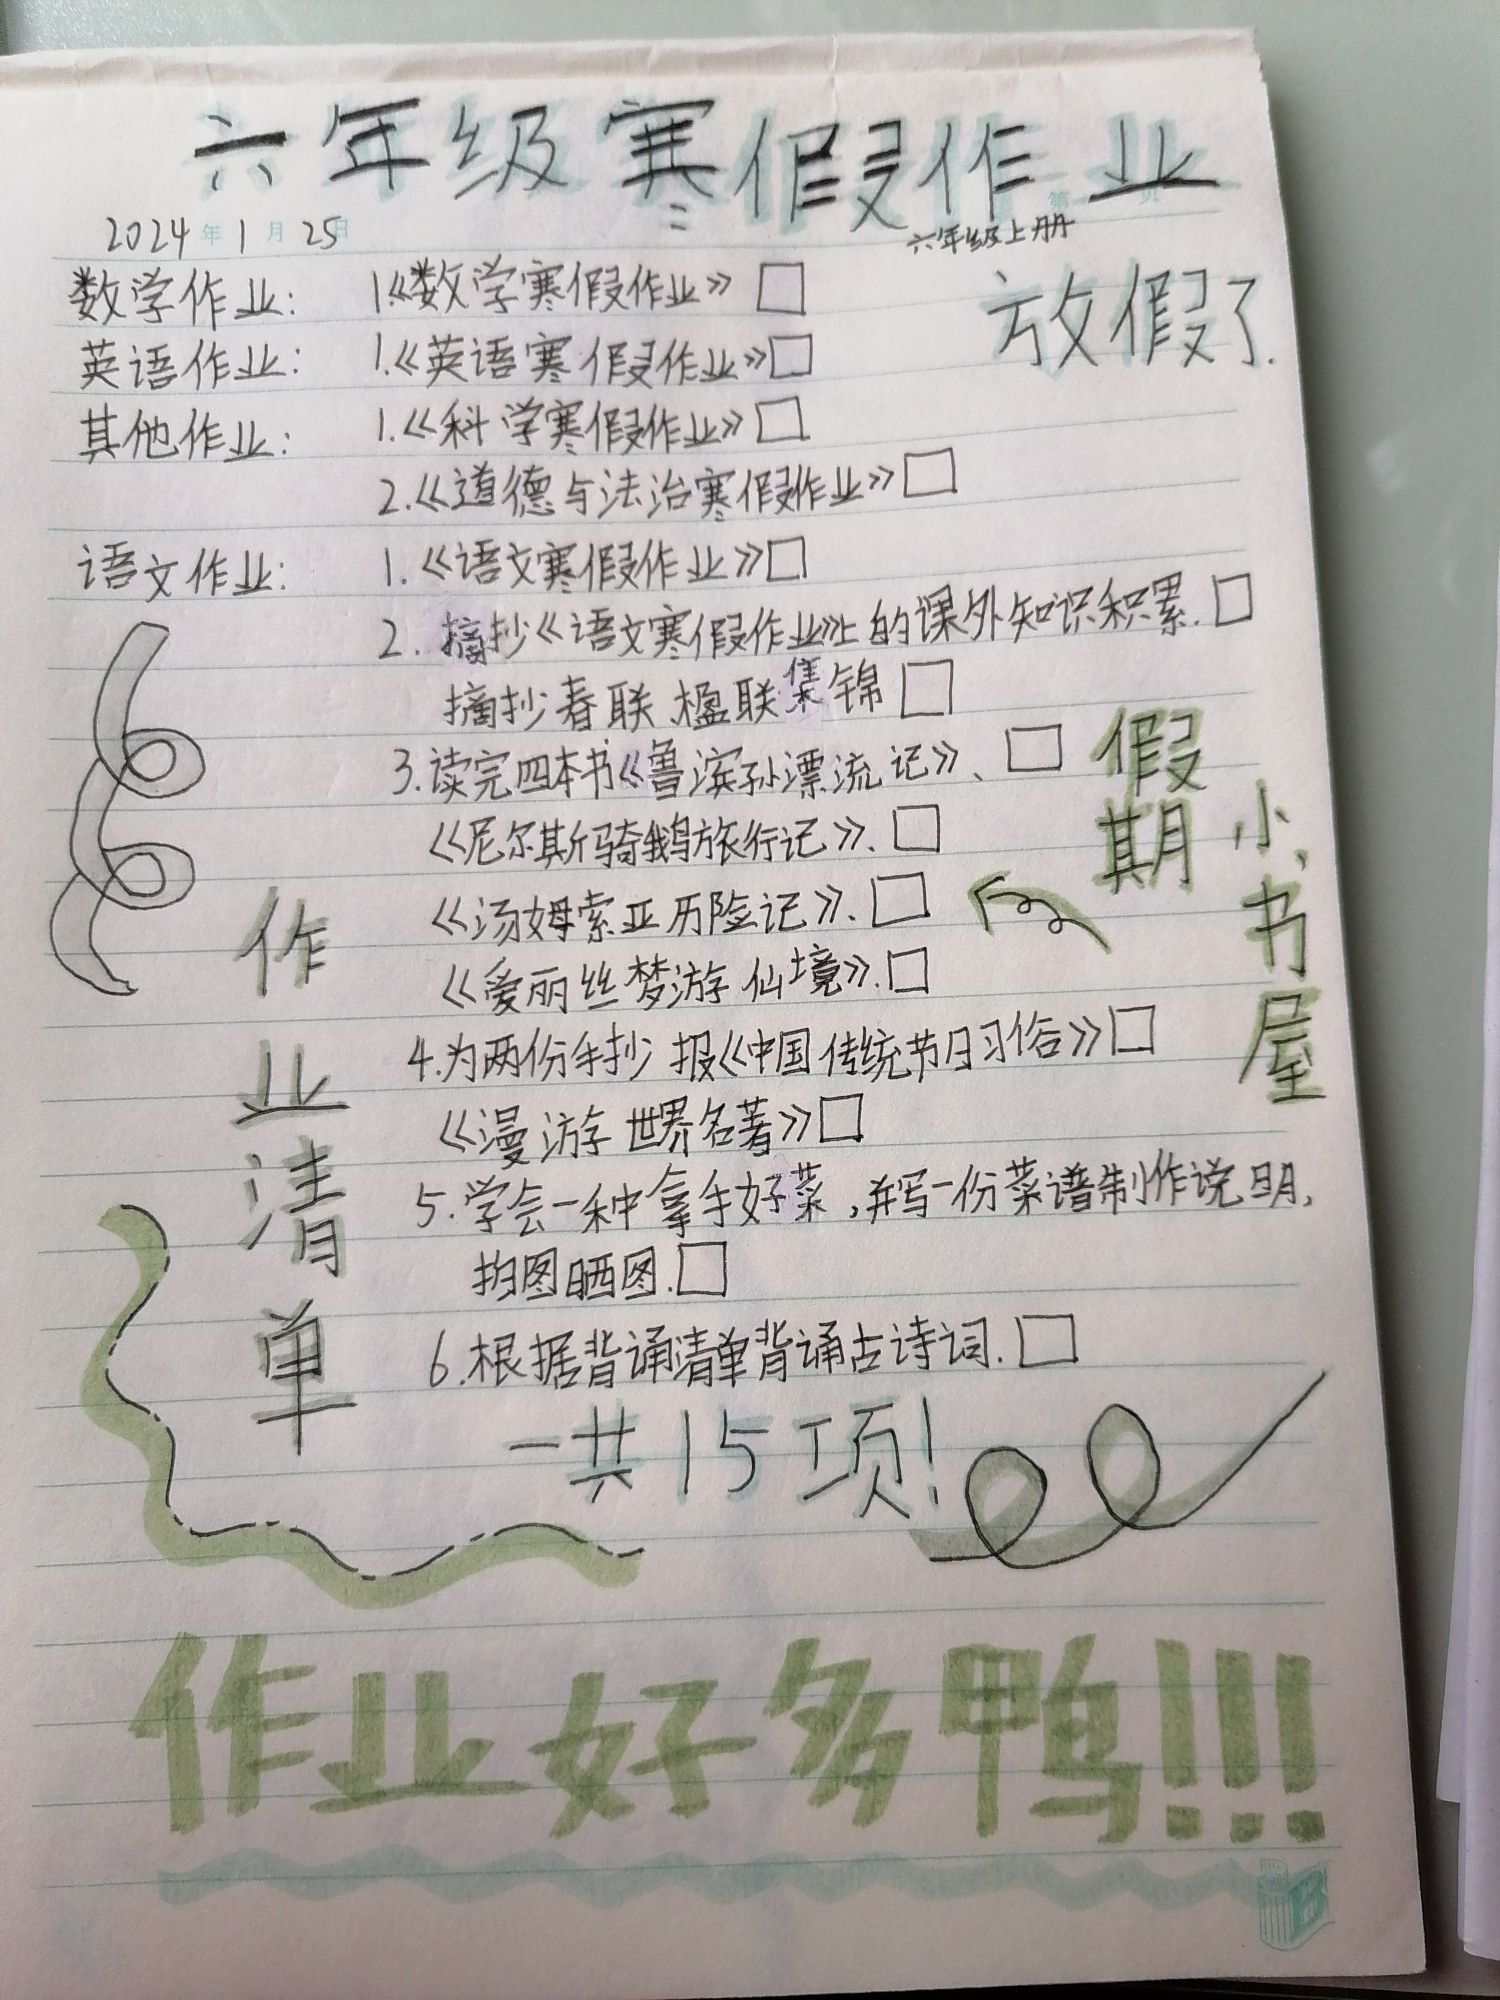 六年级寒假作业
第 页
2024年1月25日
六年级上册
数学作业: 1.《数学寒假作业》□
放假了.
英语作业: 1.《英语寒假作业》□
其他作业: 1.《科学寒假作业》□
2.《道德与法治寒假作业》□
语文作业: 1.《语文寒假作业》□
2.摘抄《语文寒假作业》上的课外知识积累.□
摘抄春联、楹联集锦□
3.读完四本书《鲁滨孙漂流记》、□
《尼尔斯骑鹅旅行记》、□
《汤姆索亚历险记》、□
《爱丽丝梦游仙境》.□
假期
小书屋
4.为两份手抄报《中国传统节日习俗》□
《漫游世界名著》□
5.学会一种拿手好菜,并写一份菜谱制作说明,
拍图晒图.□
6.根据背诵清单背诵古诗词.□
作业清单
一共15项!
作业好多鸭!!!